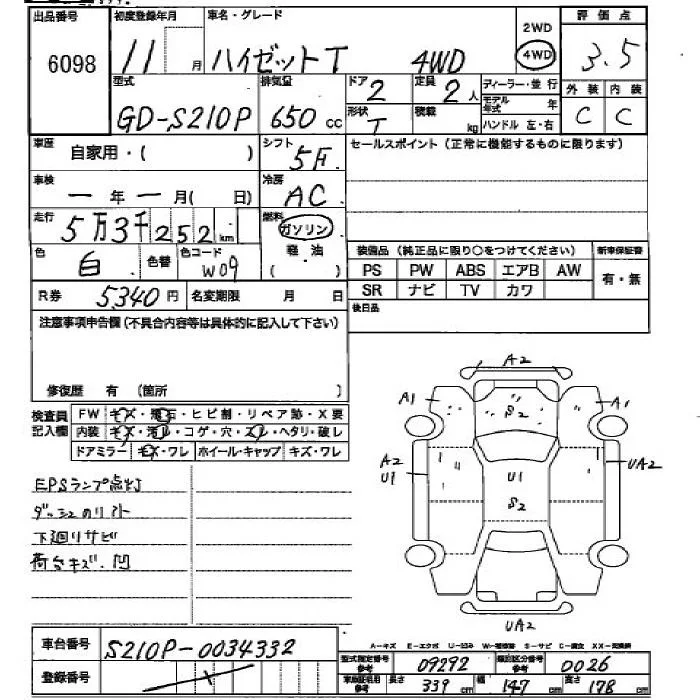 出品番号 初度登録年月 車名・グレード 評価点
6098 11月 ハイゼットT 4WD 2WD 4WD 3.5
型式 排気量 ドア 定員 ディーラー・並行 外装 内装
GD-S210P 650cc 2 2人 モデル年式 年 C C
形状 T 積載 kg ハンドル 左・右
車歴 自家用・( ) シフト 5F. セールスポイント（正常に機能するものに限ります）
車検 一年一月( 日) 冷房 AC
走行 5万3千252km 燃料 ガソリン
軽油
( )
色 白 色替 色コード W09
装備品（純正品に限り○をつけてください） 新車保証書
PS PW ABS エアB AW 有・無
SR ナビ TV カワ
R券 5,340円 名変期限 月 日 後日品
注意事項申告欄（不具合内容等は具体的に記入して下さい）
修復歴 有 （箇所 ）
検査員記入欄
FW キズ・飛石・ヒビ割・リペア跡・X要
内装 キズ・汚レ・コゲ・穴・スレ・ヘタリ・破レ
ドアミラー キズ・ワレ ホイール・キャップ キズ・ワレ
A2
A1 S2 A1
A2 UA2
U1 U1
S2
UA2
EPSランプ点灯
下廻りサビ
荷台キズ.凹
車台番号 S210P-0034332
登録番号
A-キズ E-エクボ U-凹み S-サビ
型式指定番号 参考 09292 類別区分番号 参考 0026
車庫証明用 参考 長さ 339cm 幅 147cm 高さ 178cm